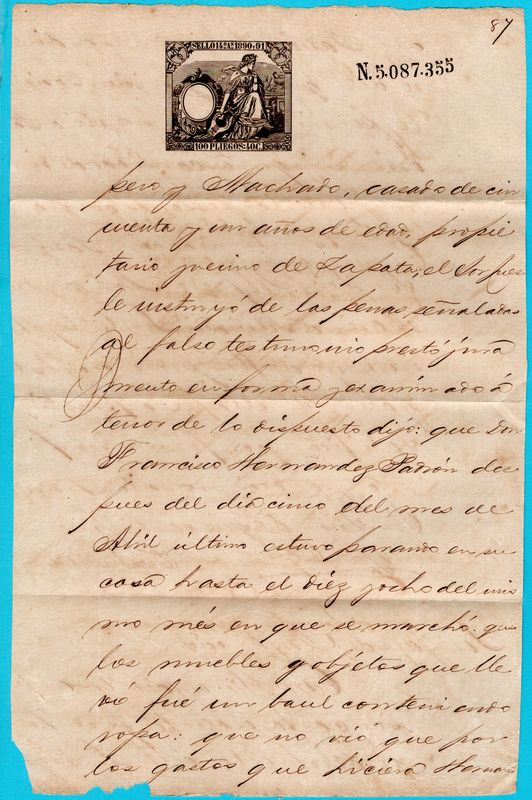 87
SELLO 14º Aº 1890 Y 91
N. 5.087.355
100 PLIEGOS: 40C.
pero y Machado, casado de cin
cuenta y un años de edad, propie
tario vecino de Zapata, el Sor Jues
le instruyó de las penas señaladas
al falso testimonio prestó jura
mento en forma y examinado á
tenor de lo dispuesto dijo: que Don
Francisco Hernandez Padrón des
pues del dia cinco del mes de
Abril último estuvo parando en su
casa hasta el diez y ocho del mis
mo més en que se marchó: que
los muebles y objetos que lle
vó fué un baul conteniendo
ropa: que no vió que por
los gastos que hiciera Hernan